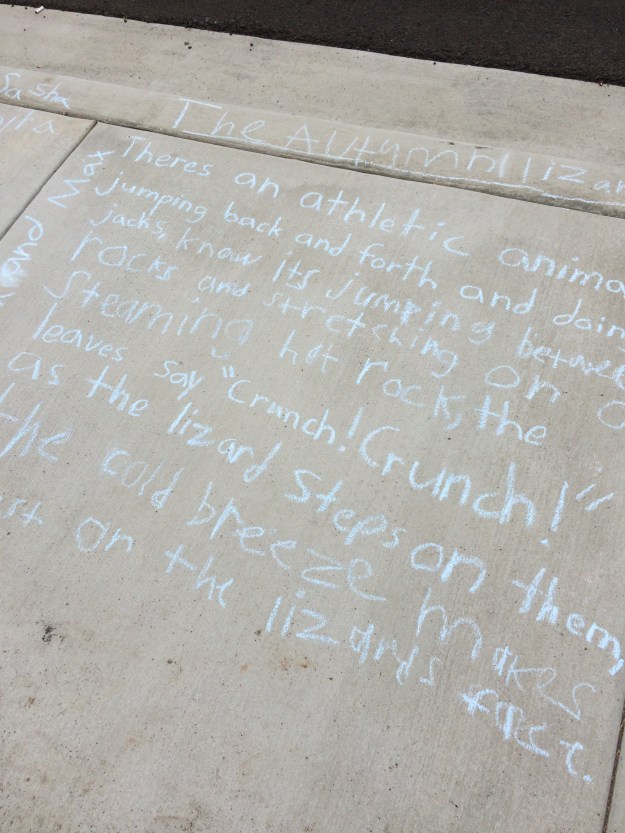 Sasha
The AUtumn lizar
Max
Theres an athletic anima
jumping back and forth and doin
jacks, know its jumping betwee
rocks and stretching on a
steaming hot rock, the
leaves say "Crunch! Crunch!"
as the lizard steps on them,
the cold breeze makes
ist on the lizards face.